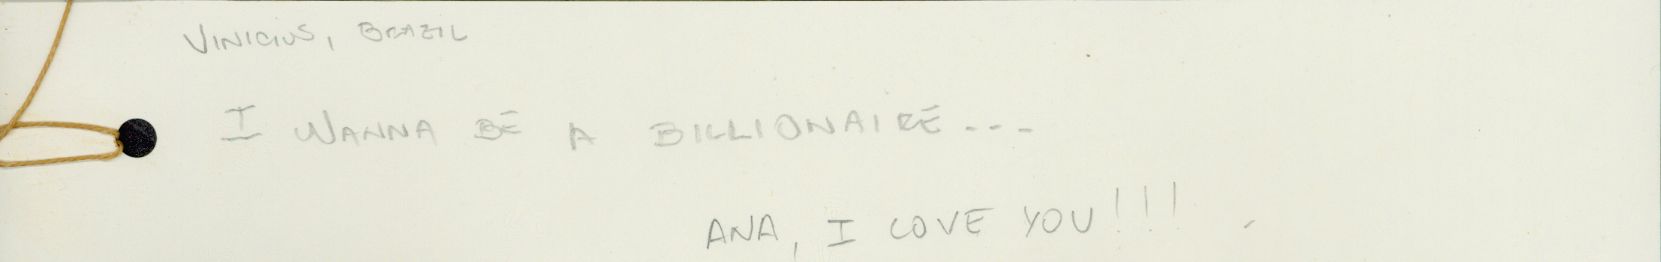 VINICIUS, BRAZIL
I WANNA BE A BILLIONAIRE...
ANA, I LOVE YOU!!!